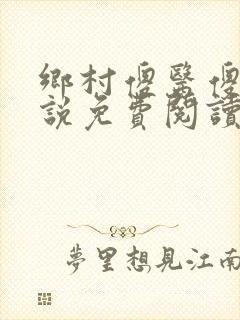 鄉村傻醫傻
說免費閱讀
夢里想見江南